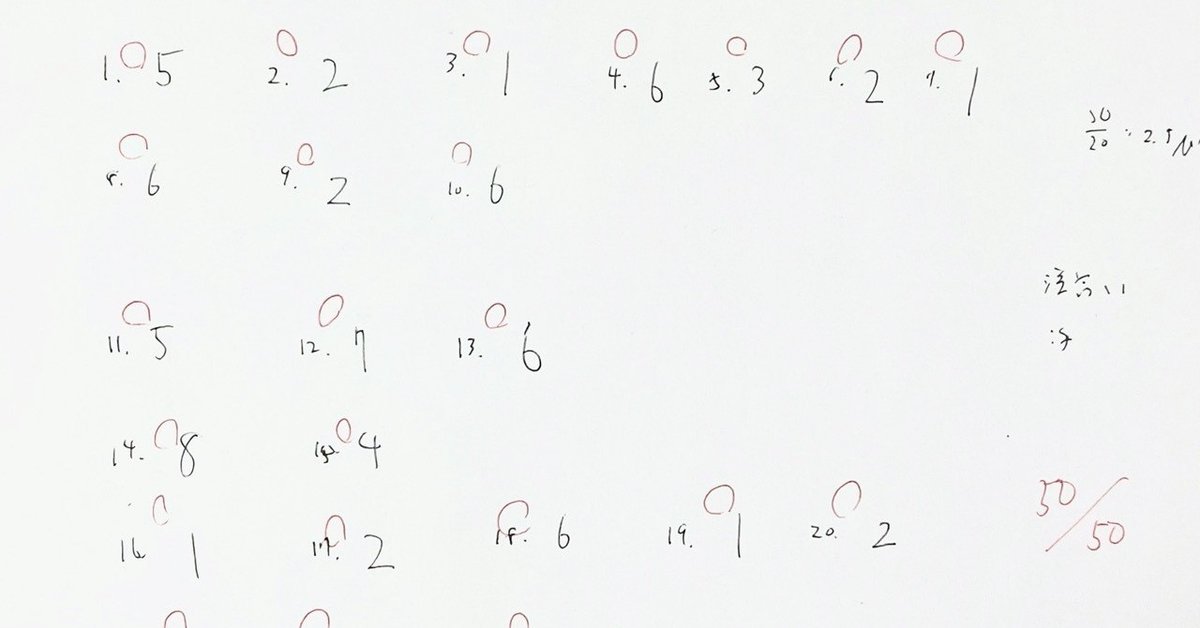 1. 5 2. 2 3. 1 4. 6 5. 3 6. 2 7. 1
50/20 : 2.5/
8. 6 9. 2 10. 6
11. 5 12. 7 13. 6
14. 8 15. 4
16 1 17. 2 18. 6 19. 1 20. 2
50/50